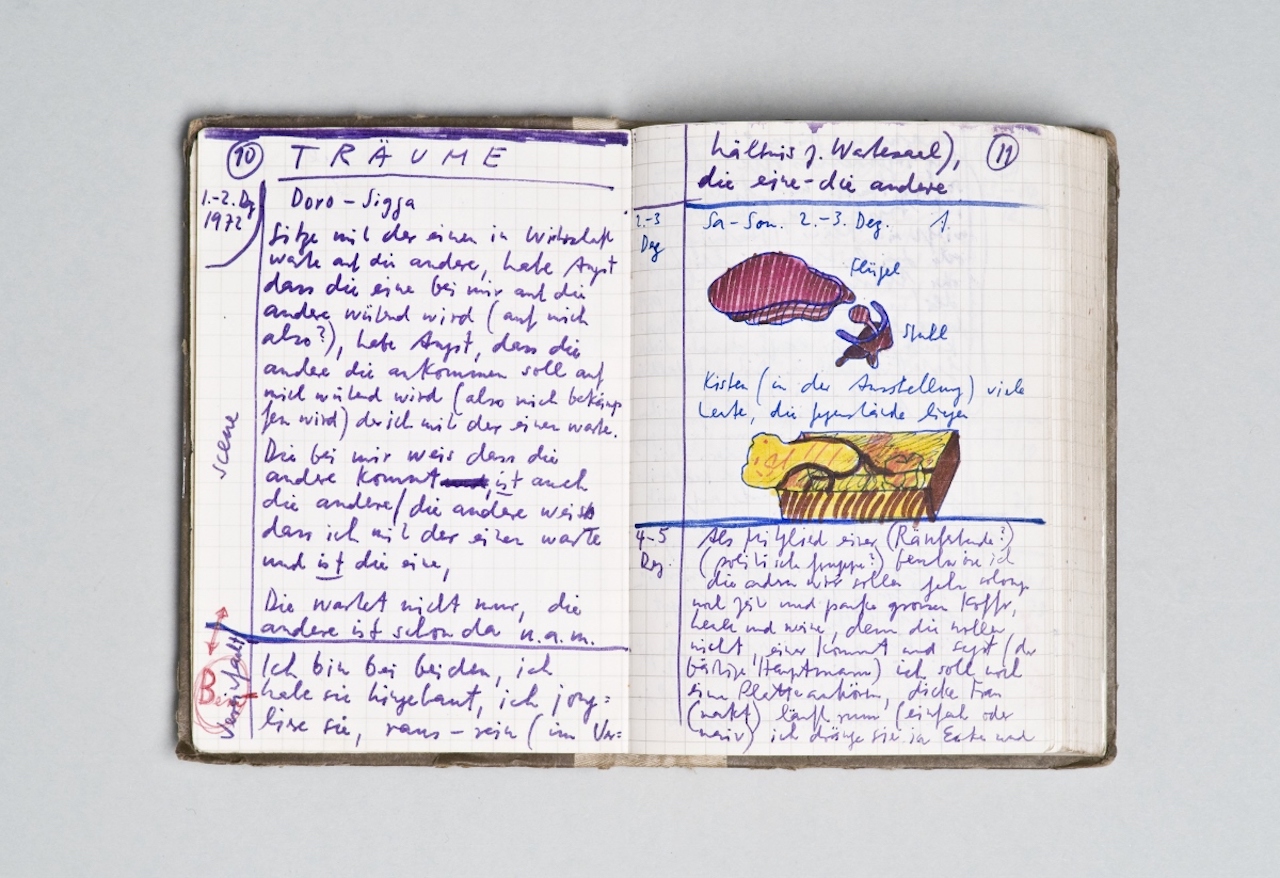 10
TRÄUME
1.-2. Dez
1972
Doro - Sigga
Sitze mit der einen in Wirtschaft
warte auf die andere, habe Angst
dass die eine bei mir auf die
andere wütend wird (auf mich
also?), habe Angst, dass die
andere die ankommen soll auf
mich wütend wird (also mich bekämp
fen wird) der ich mit der einen warte.
Scene
Die bei mir weis dass die
andere kommt, ist auch
die andere/die andere weis
dass ich mit der einen warte
und ist die eine,
Die wartet nicht nur, die
andere ist schon da u.a.m.
Ich bin bei beiden, ich
habe sie hingebaut, ich jong=
liere sie, raus-rein (im Ver=
11
hältnis z. Wartesael),
die eine-die andere
2.-3
Dez
Sa-Son. 2.-3. Dez. 1.
Flügel
Stuhl
Kisten (in der Ausstellung) viele
Leute, die Gegenstände liegen
4-5
Dez.
Als Mitglied einer (Räuberbande?)
(politische Gruppe?) ich
die andern wir sollen
und und packe grossen Koffer,
heule und weine, denn die wollen
nicht, einer kommt und sagt (der
bärtige Hauptmann) ich soll noch
eine Platte anhören, dicke Frau
(nackt) läuft rum (einfach oder
naiv) ich dränge sie in Ecke und